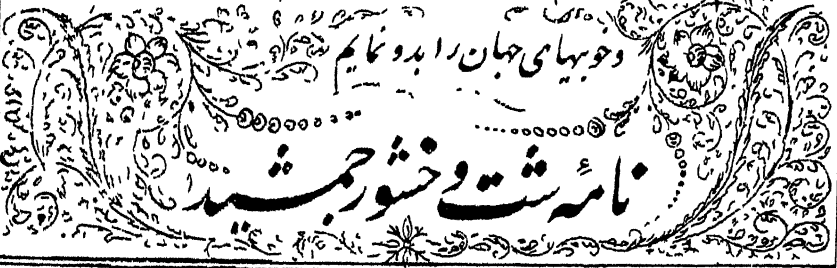 وخوبیهای جهان را بدو نمایم
نامهٔ شت وخشور جمشید